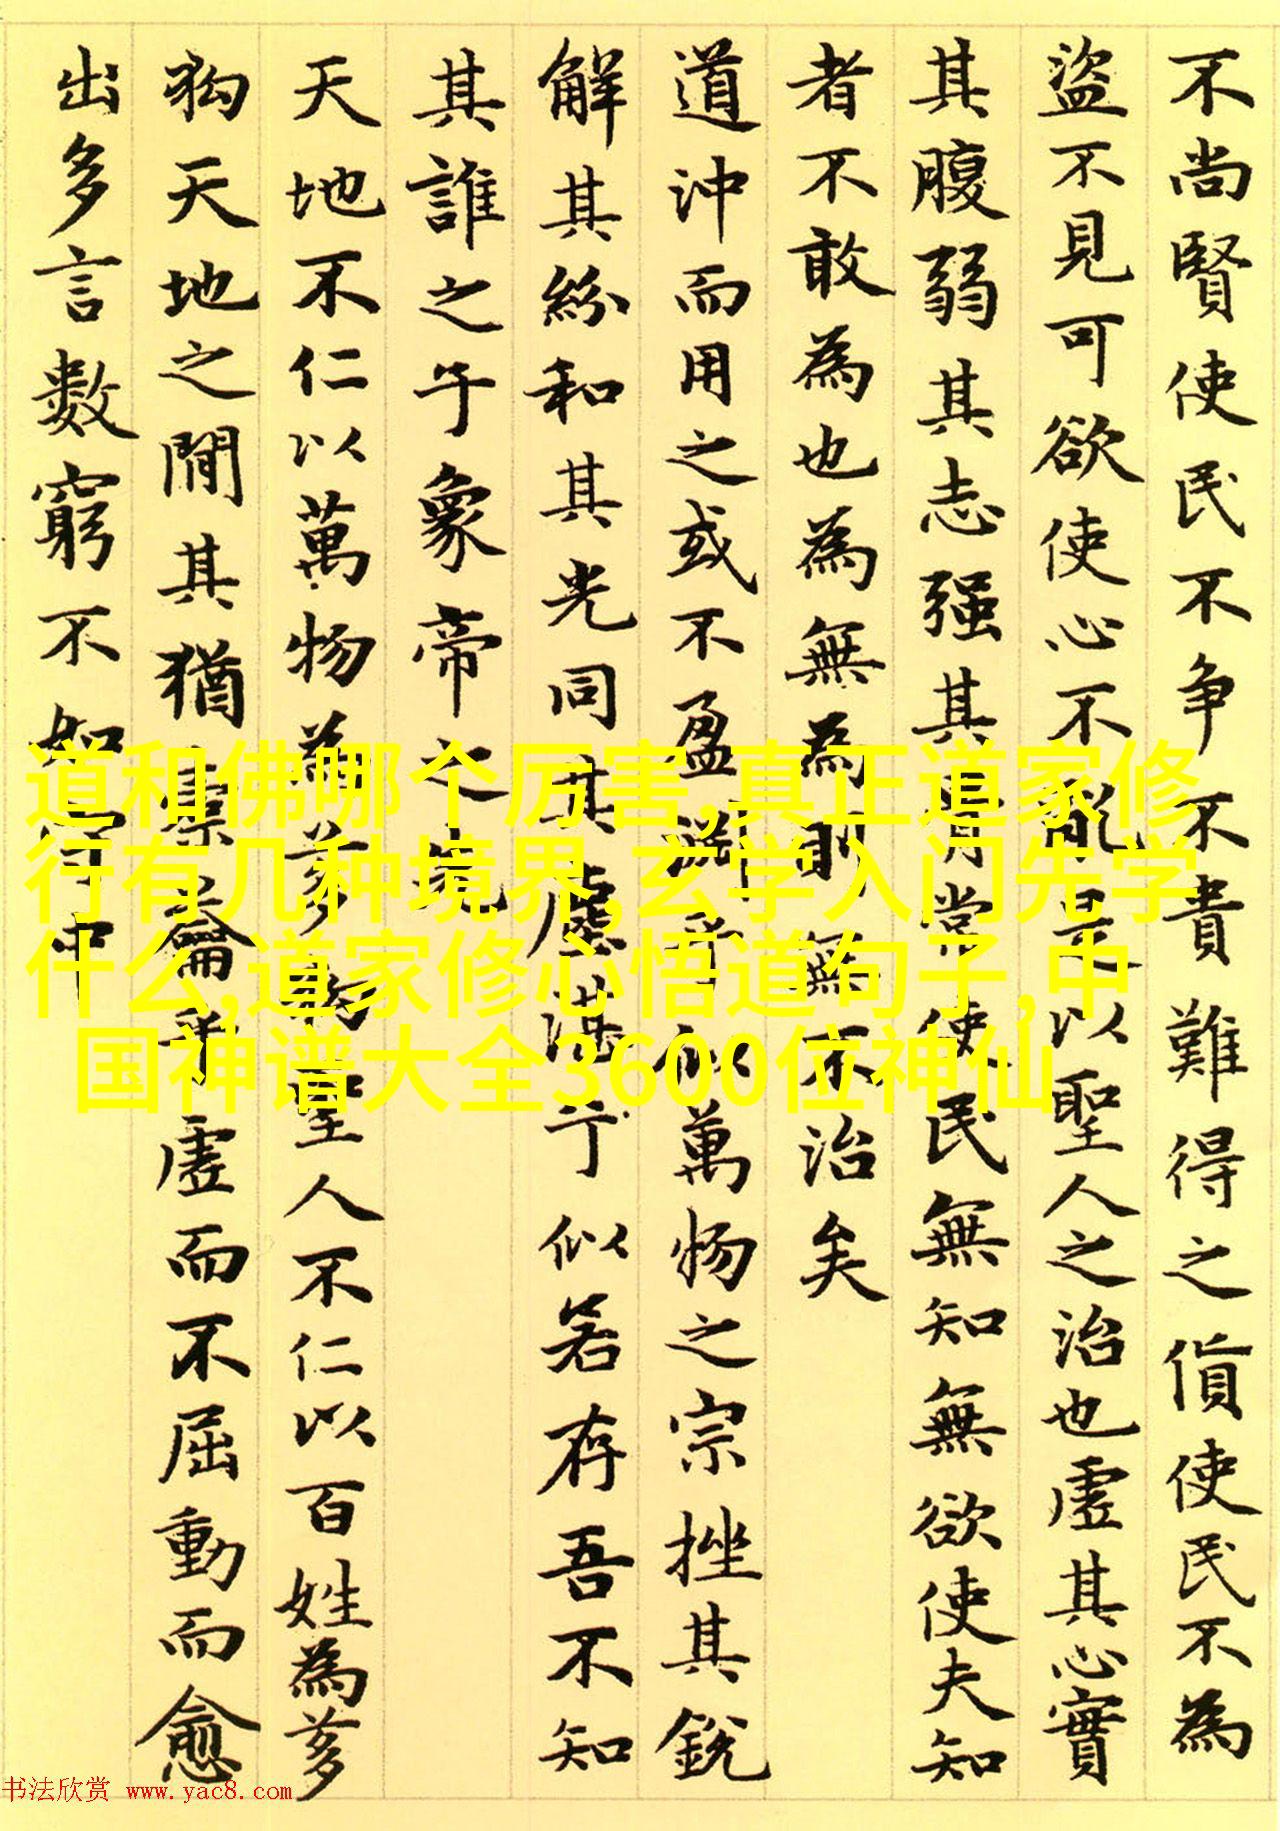 不尚賢使民不争不貴難得之貨使民不為
盜不見可欲使心不亂是以聖人之治也虛其心實
其腹弱其志强其骨常使民無知無欲使夫知
者不敢為也為無為則無不治矣
道沖而用之或不盈淵乎似萬物之宗挫其銳
解其紛和其光同其塵湛兮似若存吾不知
其誰之子象帝之先
天地不仁以萬物為芻狗聖人不仁以百姓為芻
狗天地之間其猶橐籥乎虛而不屈動而愈
出多言數窮不如守中
道和佛哪个厉害,真正道家修
行有几种境界,玄学入门先学
什么,道家修心悟道句子,中
国神谱大全3600位神仙
书法欣赏 www.yac8.com